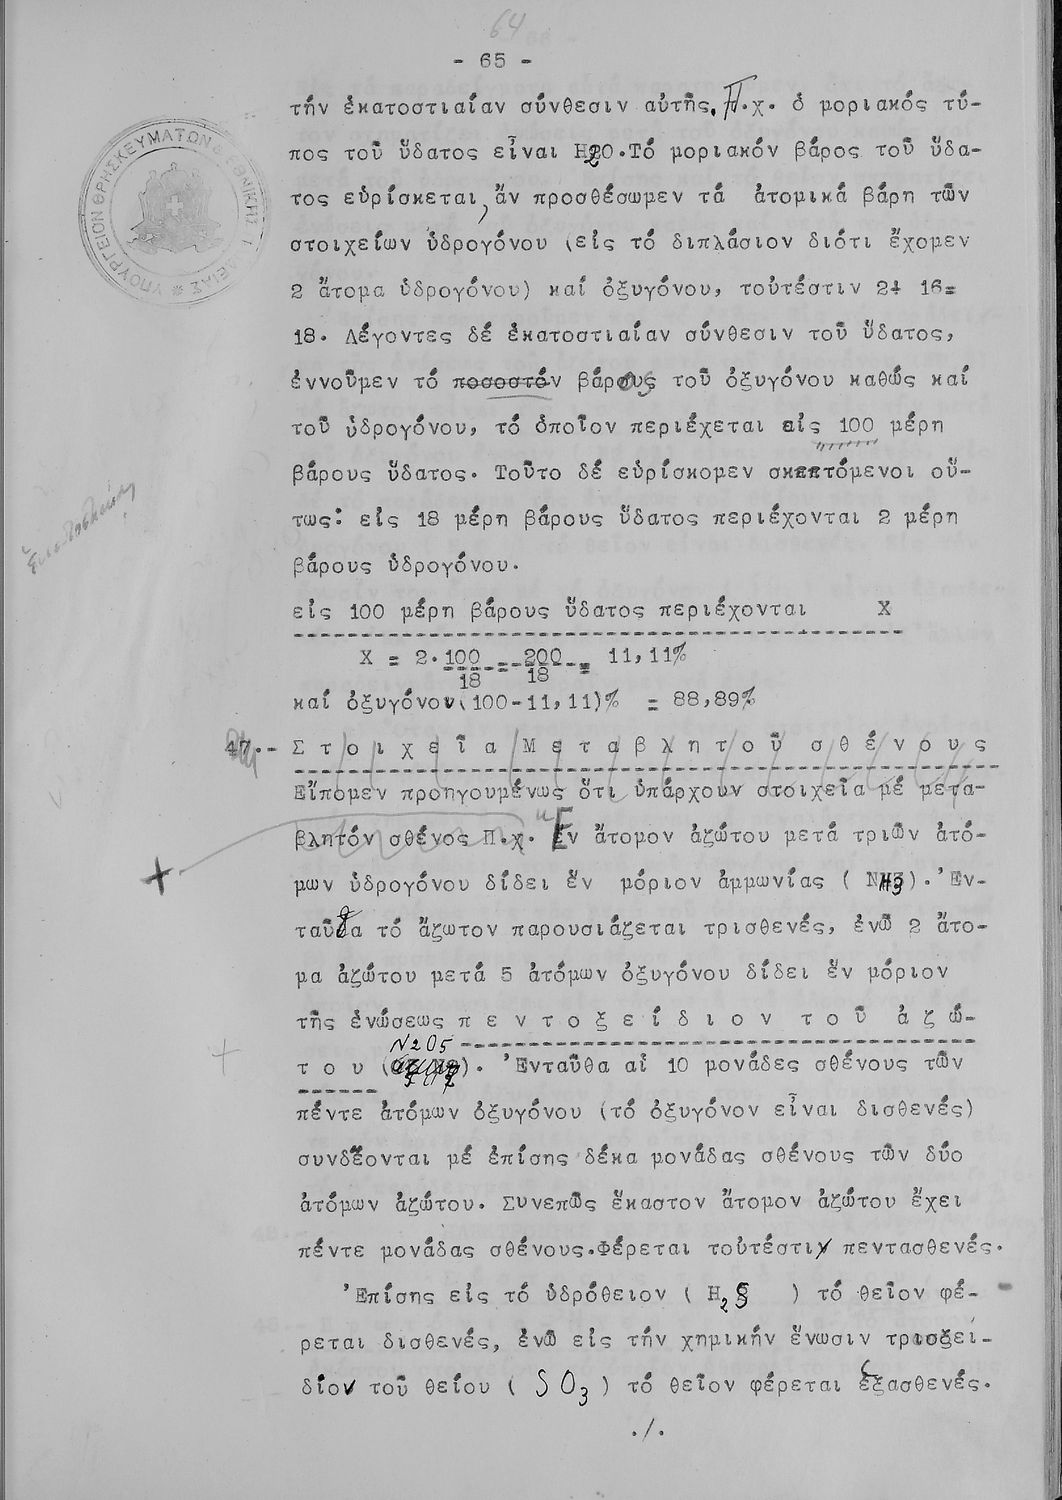 64
- 65 -
τήν ἑκατοστιαίαν σύνθεσιν αὐτῆς. Π.χ. ὁ μοριακός τύ-
πος τοῦ ὕδατος εἶναι H2O. Τό μοριακόν βάρος τοῦ ὕδα-
τος εὑρίσκεται, ἄν προσθέσωμεν τά ἀτομικά βάρη τῶν
στοιχείων ὑδρογόνου (εἰς τό διπλάσιον διότι ἔχομεν
2 ἄτομα ὑδρογόνου) καί ὀξυγόνου, τοὐτέστιν 2+ 16=
18. Λέγοντες δέ ἑκατοστιαίαν σύνθεσιν τοῦ ὕδατος,
ἐννοῦμεν τό ποσοστόν βάρος τοῦ ὀξυγόνου καθώς καί
τοῦ ὑδρογόνου, τό ὁποῖον περιέχεται εἰς 100 μέρη
βάρους ὕδατος. Τοῦτο δέ εὑρίσκομεν σκεπτόμενοι οὕ-
τως: εἰς 18 μέρη βάρους ὕδατος περιέχονται 2 μέρη
βάρους ὑδρογόνου.
εἰς 100 μέρη βάρους ὕδατος περιέχονται X
X = 2.100 = 200 = 11,11%
18 18
καί ὀξυγόνου (100-11,11)% = 88,89%
47.- Στοιχεῖα Μεταβλητοῦ σθένους
Εἴπομεν προηγουμένως ὅτι ὑπάρχουν στοιχεῖα μέ μετα-
βλητόν σθένος Π.χ. "Εν ἄτομον ἀζώτου μετά τριῶν ἀτό-
μων ὑδρογόνου δίδει ἕν μόριον ἀμμωνίας ( NH3). Ἐν-
ταῦθα τό ἄζωτον παρουσιάζεται τρισθενές, ἐνῶ 2 ἄτο-
μα ἀζώτου μετά 5 ἀτόμων ὀξυγόνου δίδει ἕν μόριον
τῆς ἑνώσεως πεντοξείδιον τοῦ ἀζώ-
του (N2O5). Ἐνταῦθα αἱ 10 μονάδες σθένους τῶν
πέντε ἀτόμων ὀξυγόνου (τό ὀξυγόνον εἶναι δισθενές)
συνδέονται μέ ἐπίσης δέκα μονάδας σθένους τῶν δύο
ἀτόμων ἀζώτου. Συνεπῶς ἕκαστον ἄτομον ἀζώτου ἔχει
πέντε μονάδας σθένους. Φέρεται τοὐτέστιν πεντασθενές.
Ἐπίσης εἰς τό ὑδρόθειον ( H2S ) τό θεῖον φέ-
ρεται δισθενές, ἐνῶ εἰς τήν χημικήν ἕνωσιν τριοξει-
δίον τοῦ θείου ( SO3 ) τό θεῖον φέρεται ἑξασθενές.
./.